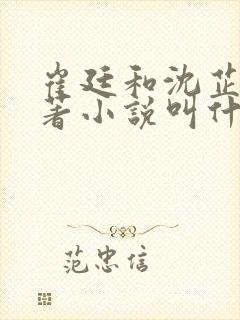 崔廷和沈芷
著小説叫什
范忠信